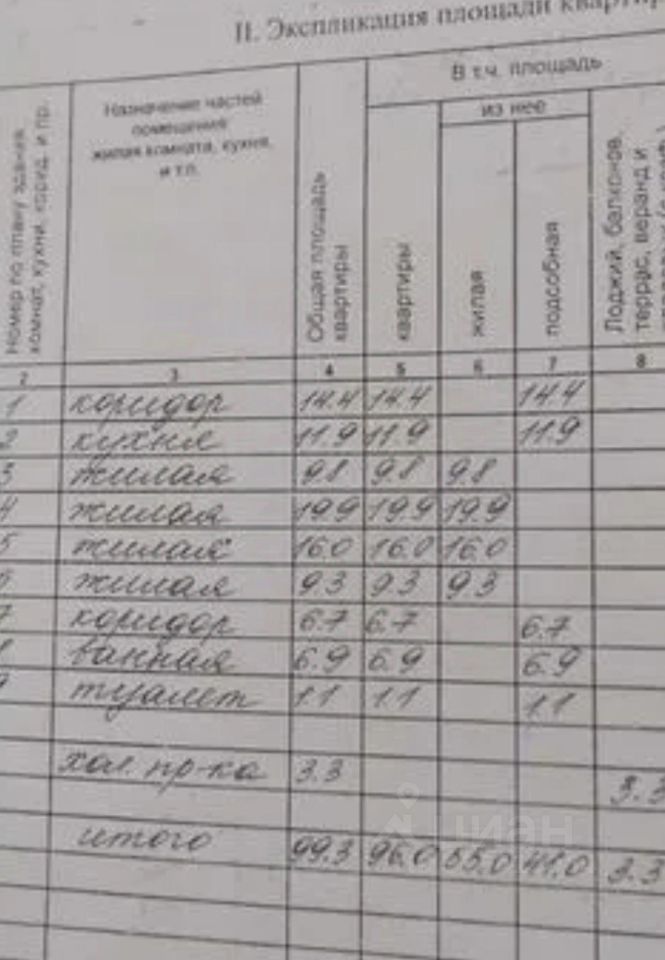 II. Экспликация площади кварти
Номер по плану здания, комнат, кухни, корид. и пр.
Назначение частей
помещения:
жилая комната, кухня,
и т.п.
Общая площадь
квартиры
В т.ч. площадь
из нее
квартиры
жилая
подсобная
Лоджий, балконов,
террас, веранд и
2 3 4 5 6 7 8
1 коридор 14.4 14.4 14.4
2 кухня 11.9 11.9 11.9
3 жилая 9.8 9.8 9.8
4 жилая 19.9 19.9 19.9
5 жилая 16.0 16.0 16.0
6 жилая 9.3 9.3 9.3
7 коридор 6.7 6.7 6.7
8 ванная 6.9 6.9 6.9
9 туалет 1.1 1.1 1.1
хол. пр-ка 3.3 3.3
итого 99.3 96.0 55.0 41.0 3.3
циан